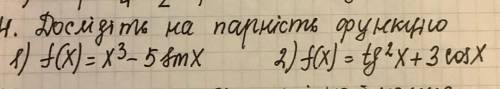 4. Дослідіть на парність функцію
1) f(x) = x³ - 5 sinx 2) f(x) = tg²x + 3 cosx